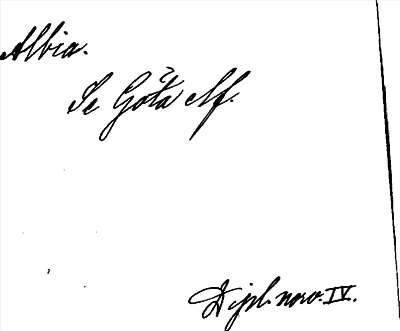 Albia.
Se Göta Alf.
Dipl. norv. IV.